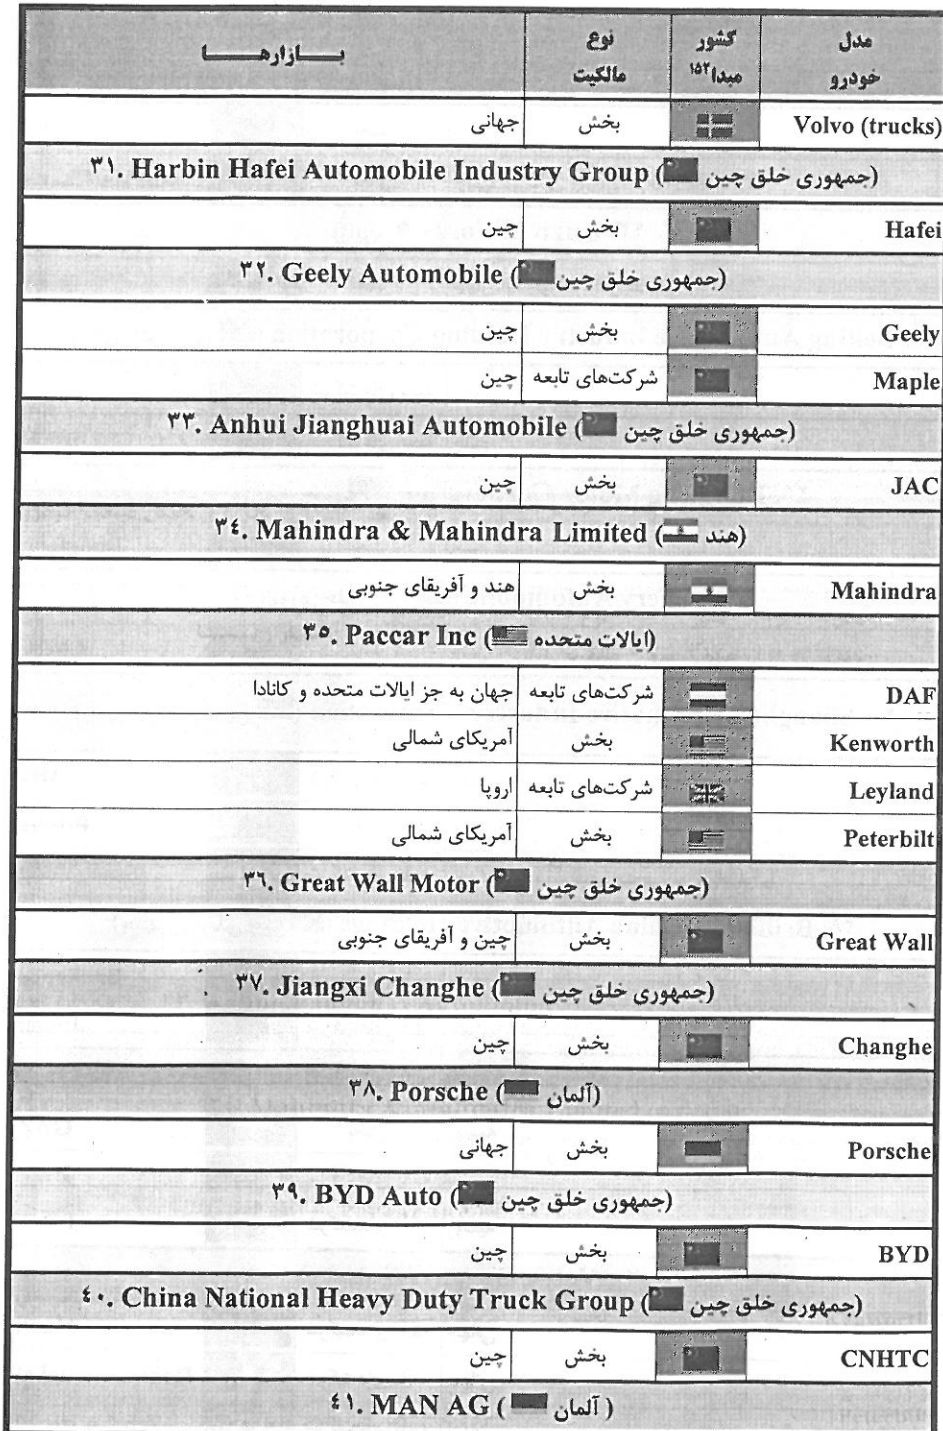 مدل خودرو | کشور مبدا۱۵۲ | نوع مالکیت | بـــازارهـــا
Volvo (trucks) | بخش | جهانی
۳۱. Harbin Hafei Automobile Industry Group (جمهوری خلق چین)
Hafei | بخش | چین
۳۲. Geely Automobile (جمهوری خلق چین)
Geely | بخش | چین
Maple | شرکت‌های تابعه | چین
۳۳. Anhui Jianghuai Automobile (جمهوری خلق چین)
JAC | بخش | چین
۳٤. Mahindra & Mahindra Limited (هند)
Mahindra | بخش | هند و آفریقای جنوبی
۳٥. Paccar Inc (ایالات متحده)
DAF | شرکت‌های تابعه | جهان به جز ایالات متحده و کانادا
Kenworth | بخش | آمریکای شمالی
Leyland | شرکت‌های تابعه | اروپا
Peterbilt | بخش | آمریکای شمالی
۳٦. Great Wall Motor (جمهوری خلق چین)
Great Wall | بخش | چین و آفریقای جنوبی
۳۷. Jiangxi Changhe (جمهوری خلق چین)
Changhe | بخش | چین
۳۸. Porsche (آلمان)
Porsche | بخش | جهانی
۳۹. BYD Auto (جمهوری خلق چین)
BYD | بخش | چین
٤۰. China National Heavy Duty Truck Group (جمهوری خلق چین)
CNHTC | بخش | چین
٤۱. MAN AG (آلمان)